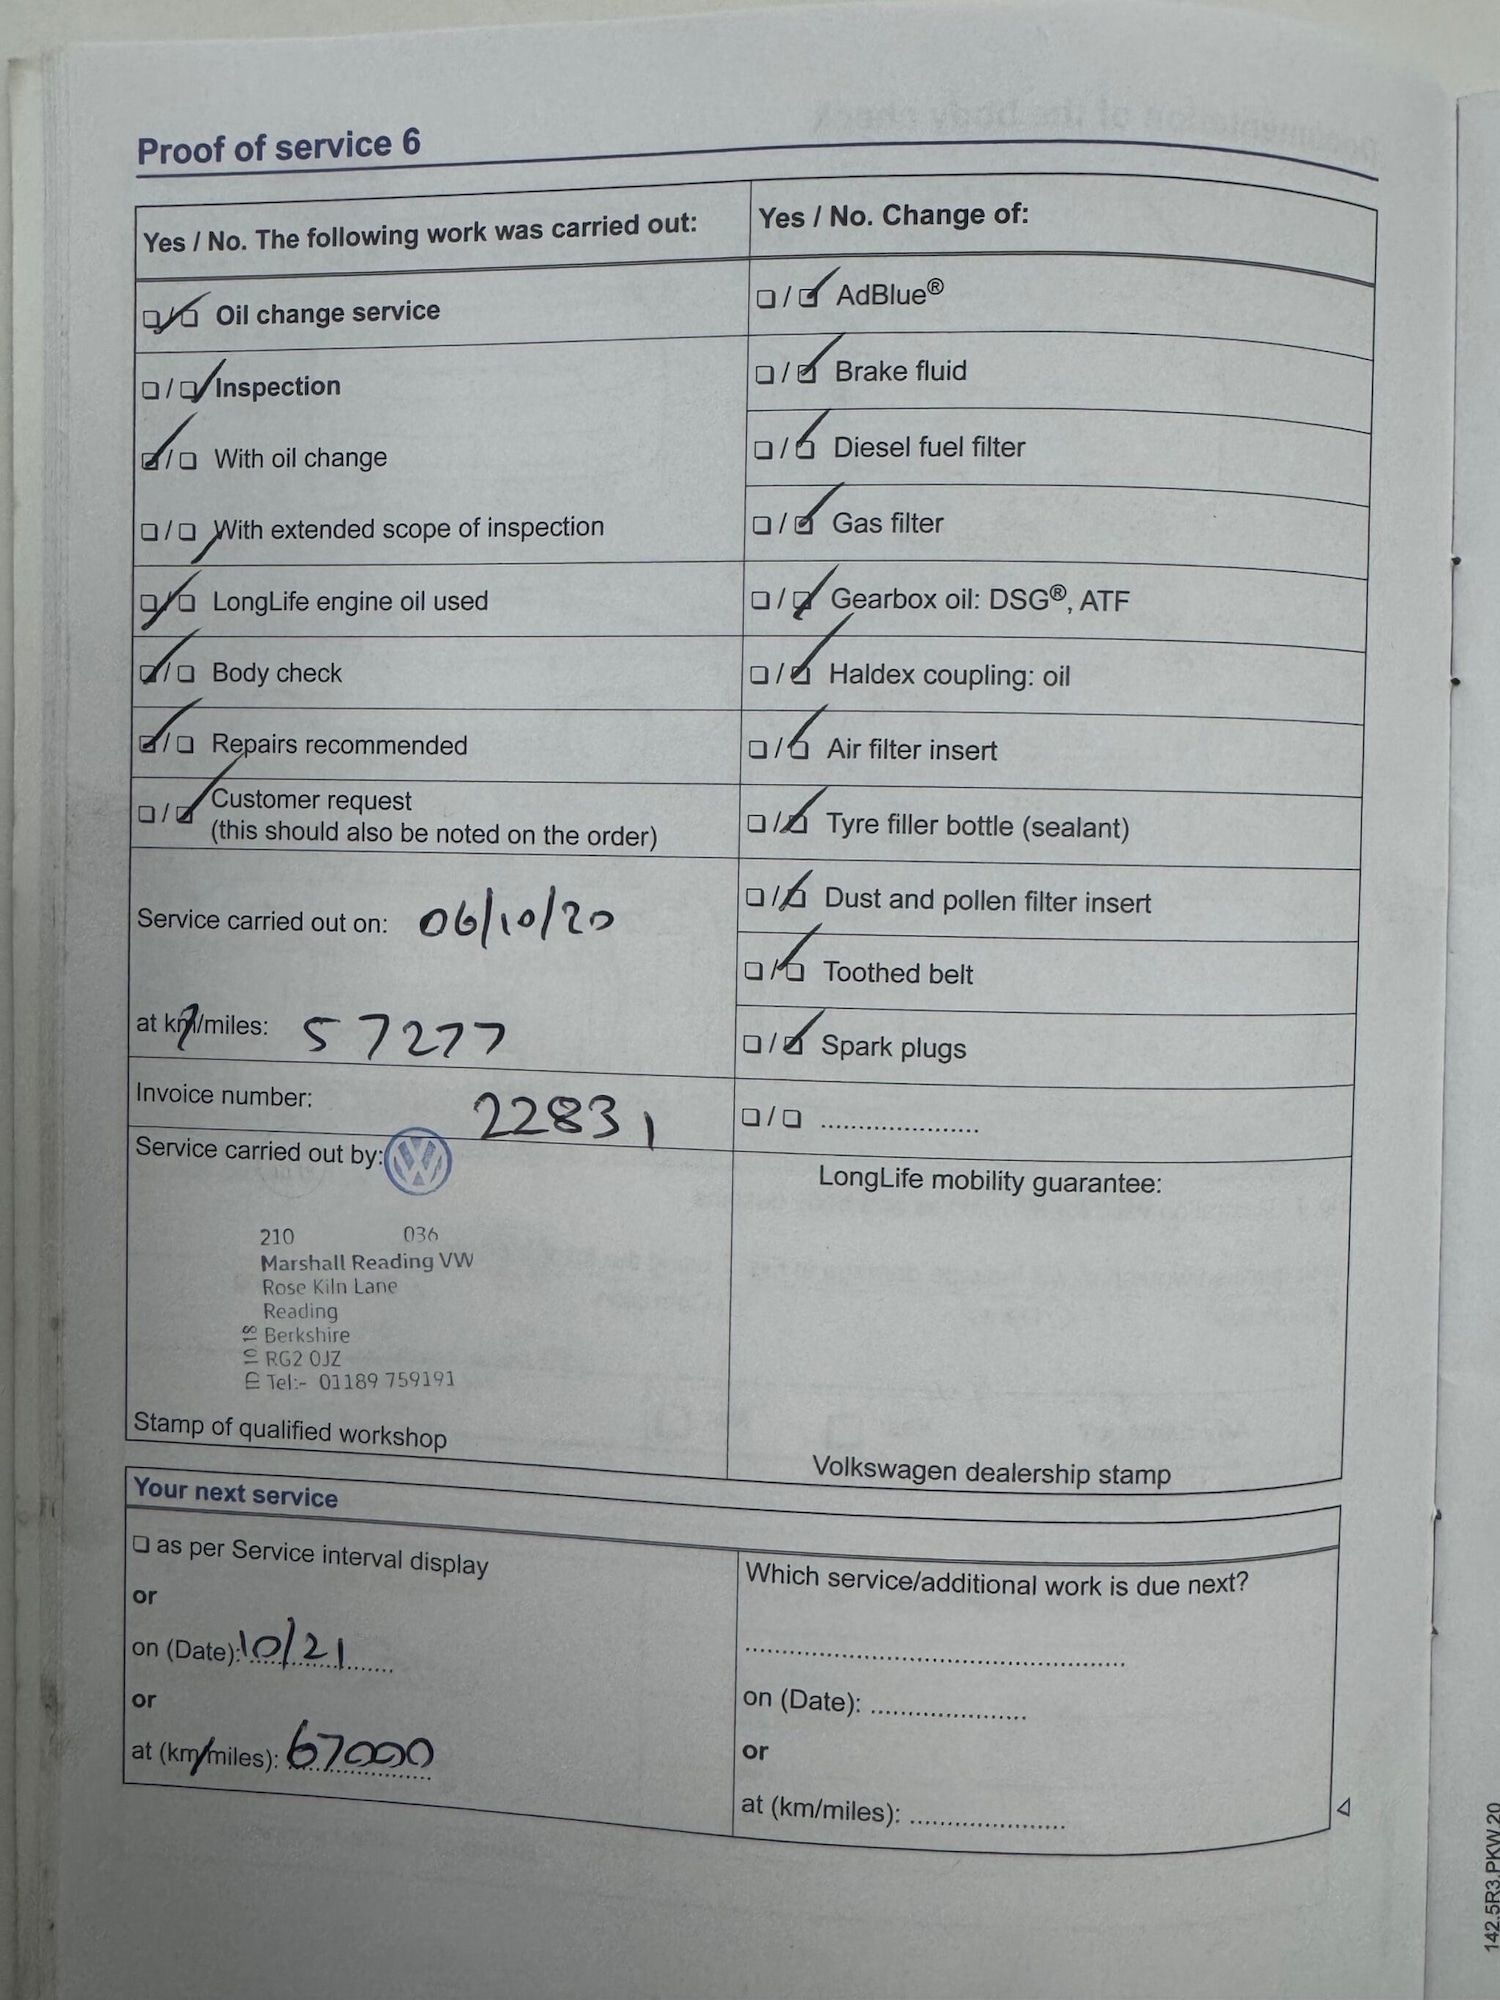 Proof of service 6
Yes / No. The following work was carried out:
☑/☐ Oil change service
☐/☑ Inspection
☑/☐ With oil change
☐/☑ With extended scope of inspection
☑/☐ LongLife engine oil used
☑/☐ Body check
☑/☐ Repairs recommended
☐/☑ Customer request
(this should also be noted on the order)
Service carried out on: 06/10/20
at km/miles: 57277
Invoice number: 22831
Service carried out by:
210 036
Marshall Reading VW
Rose Kiln Lane
Reading
Berkshire
RG2 0JZ
Tel:- 01189 759191
ID 10 18
Stamp of qualified workshop
Yes / No. Change of:
☐/☑ AdBlue®
☐/☑ Brake fluid
☐/☑ Diesel fuel filter
☐/☑ Gas filter
☐/☑ Gearbox oil: DSG®, ATF
☐/☑ Haldex coupling: oil
☐/☑ Air filter insert
☐/☑ Tyre filler bottle (sealant)
☐/☑ Dust and pollen filter insert
☐/☑ Toothed belt
☐/☑ Spark plugs
☐/☐ ....................
LongLife mobility guarantee:
Volkswagen dealership stamp
Your next service
☐ as per Service interval display
or
on (Date): 10/21
or
at (km/miles): 67000
Which service/additional work is due next?
..................................................
on (Date): ....................
or
at (km/miles): ....................
142.5R3.PKW.20